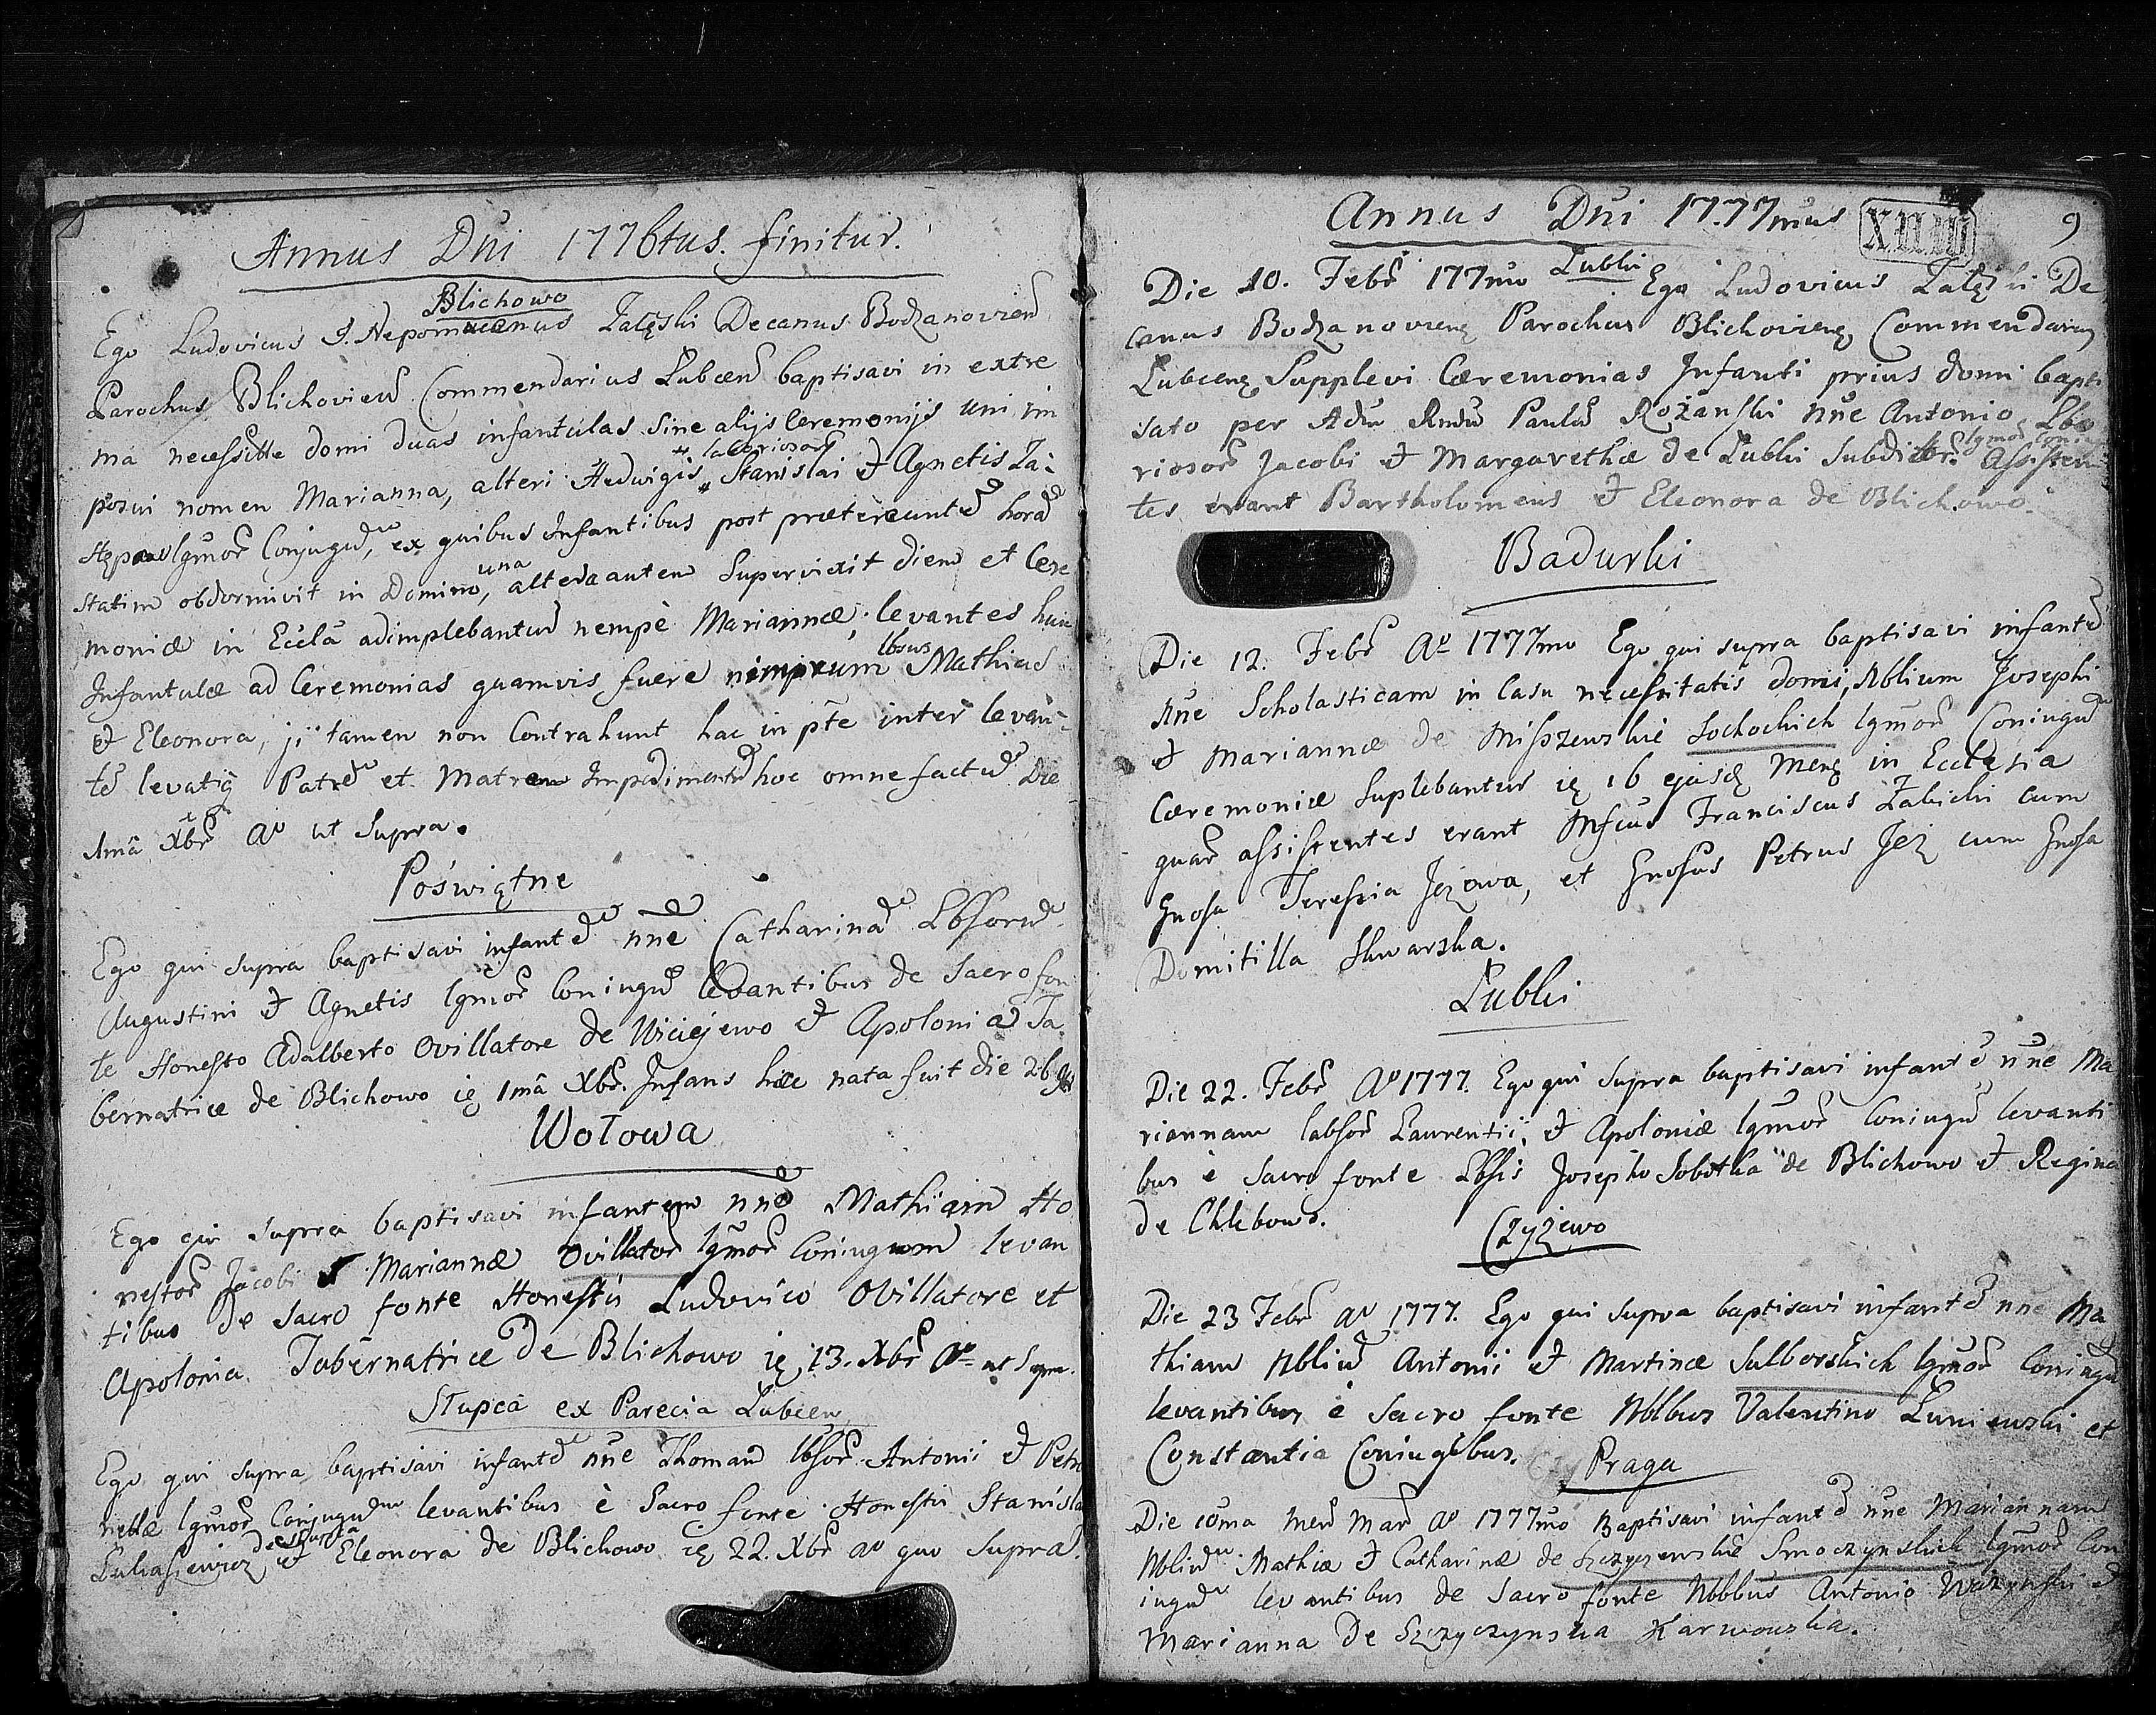 Annus Dni 1776tus. finitur.
Blichowo
Ego Ludovicus J. Nepomucenus Załęski Decanus Bodzanovien
Parochus Blichovien Commendarius Lubcen baptisavi in extre
ma necessitte domi duas infantulas sine alijs Ceremonijs uni im
posui nomen Marianna, alteri Hedwigis laboriosor Stanislai et Agnetis
lgmor Conjugu, ex quibus Infantibus post prætereunte hora
statim obdormivit in Domino, una altera autem supervixit diem et Cere
moniæ in Eccla adimplebantur nempè Mariannæ levantes hui
Infantulæ ad Ceremonias quamvis fuere nimirum lbsus Mathias
et Eleonora, ji tamen non Contrahunt hac in pte inter levan
te levatiq Patre et Matrem Impedimentu hoc omne factu Die
1mâ Xbr Ao ut supra.
Poświątne
Ego qui supra baptisavi infante nne Catharina Lbsoru
Augustini et Agnetis lgmor Coniugu levantibus de Sacro fon
te Honesto Adalberto Ovillatore de Wiciejewo et Apolonia Ta
bernatrice de Blichowo ię 1mâ Xbr. Infans hæc nata fuit die 26
Wołowa
Ego qui supra baptisavi infantem nne Mathiam Ho
nestor Jacobi et Mariannæ Ovillator lgmor Coniugum levan
tibus de sacro fonte Honestis Ludovico Ovillatore et
Apolonia Tabernatrice de Blichowo ię 13. Xbr Ao ut supra.
Słupca ex Parecia Lubcen
Ego qui supra baptisavi infante nne Thomam lbsor Antonii et Petro
nellæ lgmor Conjugu levantibus è Sacro fonte Honestis Stanisla
Lukasiewicz de Słupca et Eleonora de Blichowo ię 22. Xbr ao quo supra.
Annus Dni 1777mus
XII.III
9
Die 10. Febr 177mo Lubki Ego Ludovicus Załęski De
canus Bodzanoviens Parochus Blichoviens Commendarius
Lubcens Supplevi Cæremonias Infanti prius domi bapti
sato per Adm Rndu Paulu Rożanski nne Antonio Lbo
riosor Jacobi et Margarethæ de Lubki subditor. lgmor Coniug Assisten
tes erant Bartholomeus et Eleonora de Blichowo.
Badurki
Die 12. Febr Ao 1777mo Ego qui supra baptisavi infante
nne Scholasticam in Casu necessitatis domi, Nblium Josephi
et Mariannæ de Miszewskie Sochockich lgmor Coniugu
Cæremoniæ suplebantur ię 16 ejusd Mens in Ecclesia
quar assistentes erant Mfcus Franciscus Zabicki cum
Gnosa Teressia Jeżowa, et Gnosus Petrus Jeż cum Gnosa
Domitilla Skwarska.
Lubki
Die 22. Febr Ao 1777. Ego qui supra baptisavi infante nne Ma
riannam labsor Laurentii et Apoloniæ lgmor Coniugu levanti
bus è Sacro fonte Lbsis Josepho Sobotka de Blichowo et Regina
de Chlebowo.
Czyżewo
Die 23 Febr ao 1777. Ego qui supra baptisavi infante nne Ma
thiam Nbliu Antonii et Martinæ Sulborskich lgmor Coniugu
levantibus è Sacro fonte Nblbus Valentino Łuniewski et
Constantia Coniugibus.
Praga
Die 10ma Men Mar Ao 1777mo Baptisavi infante nne Mariannam
Nbliu Mathiæ et Catharinæ de Szczyczewskie Smoczynskich lgmor Con
iugu levantibus de Sacro fonte Nbbbus Antonio et
Marianna de Szczyczynska Karwowska.